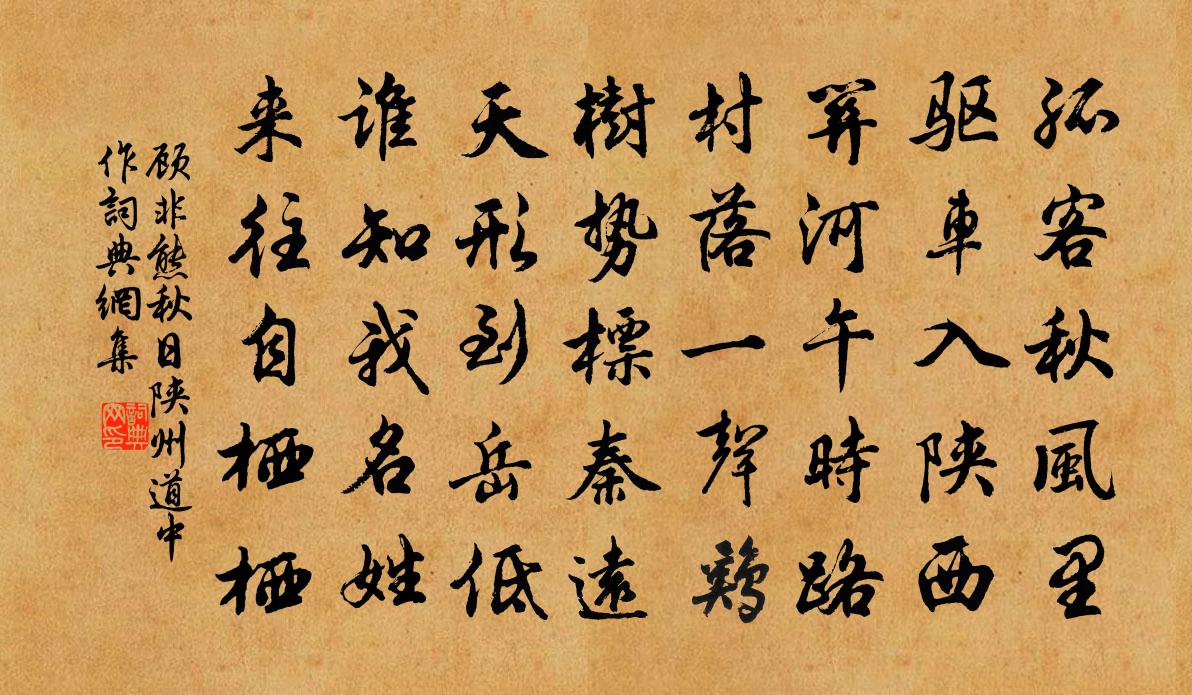 孤客秋風里
驱車入陕西
關河午時路
村落一聲鷄
樹势標秦遠
天形到岳低
谁知我名姓
来往自栖栖
顾非熊秋日陕州道中
作詞典網集
詞典
网印